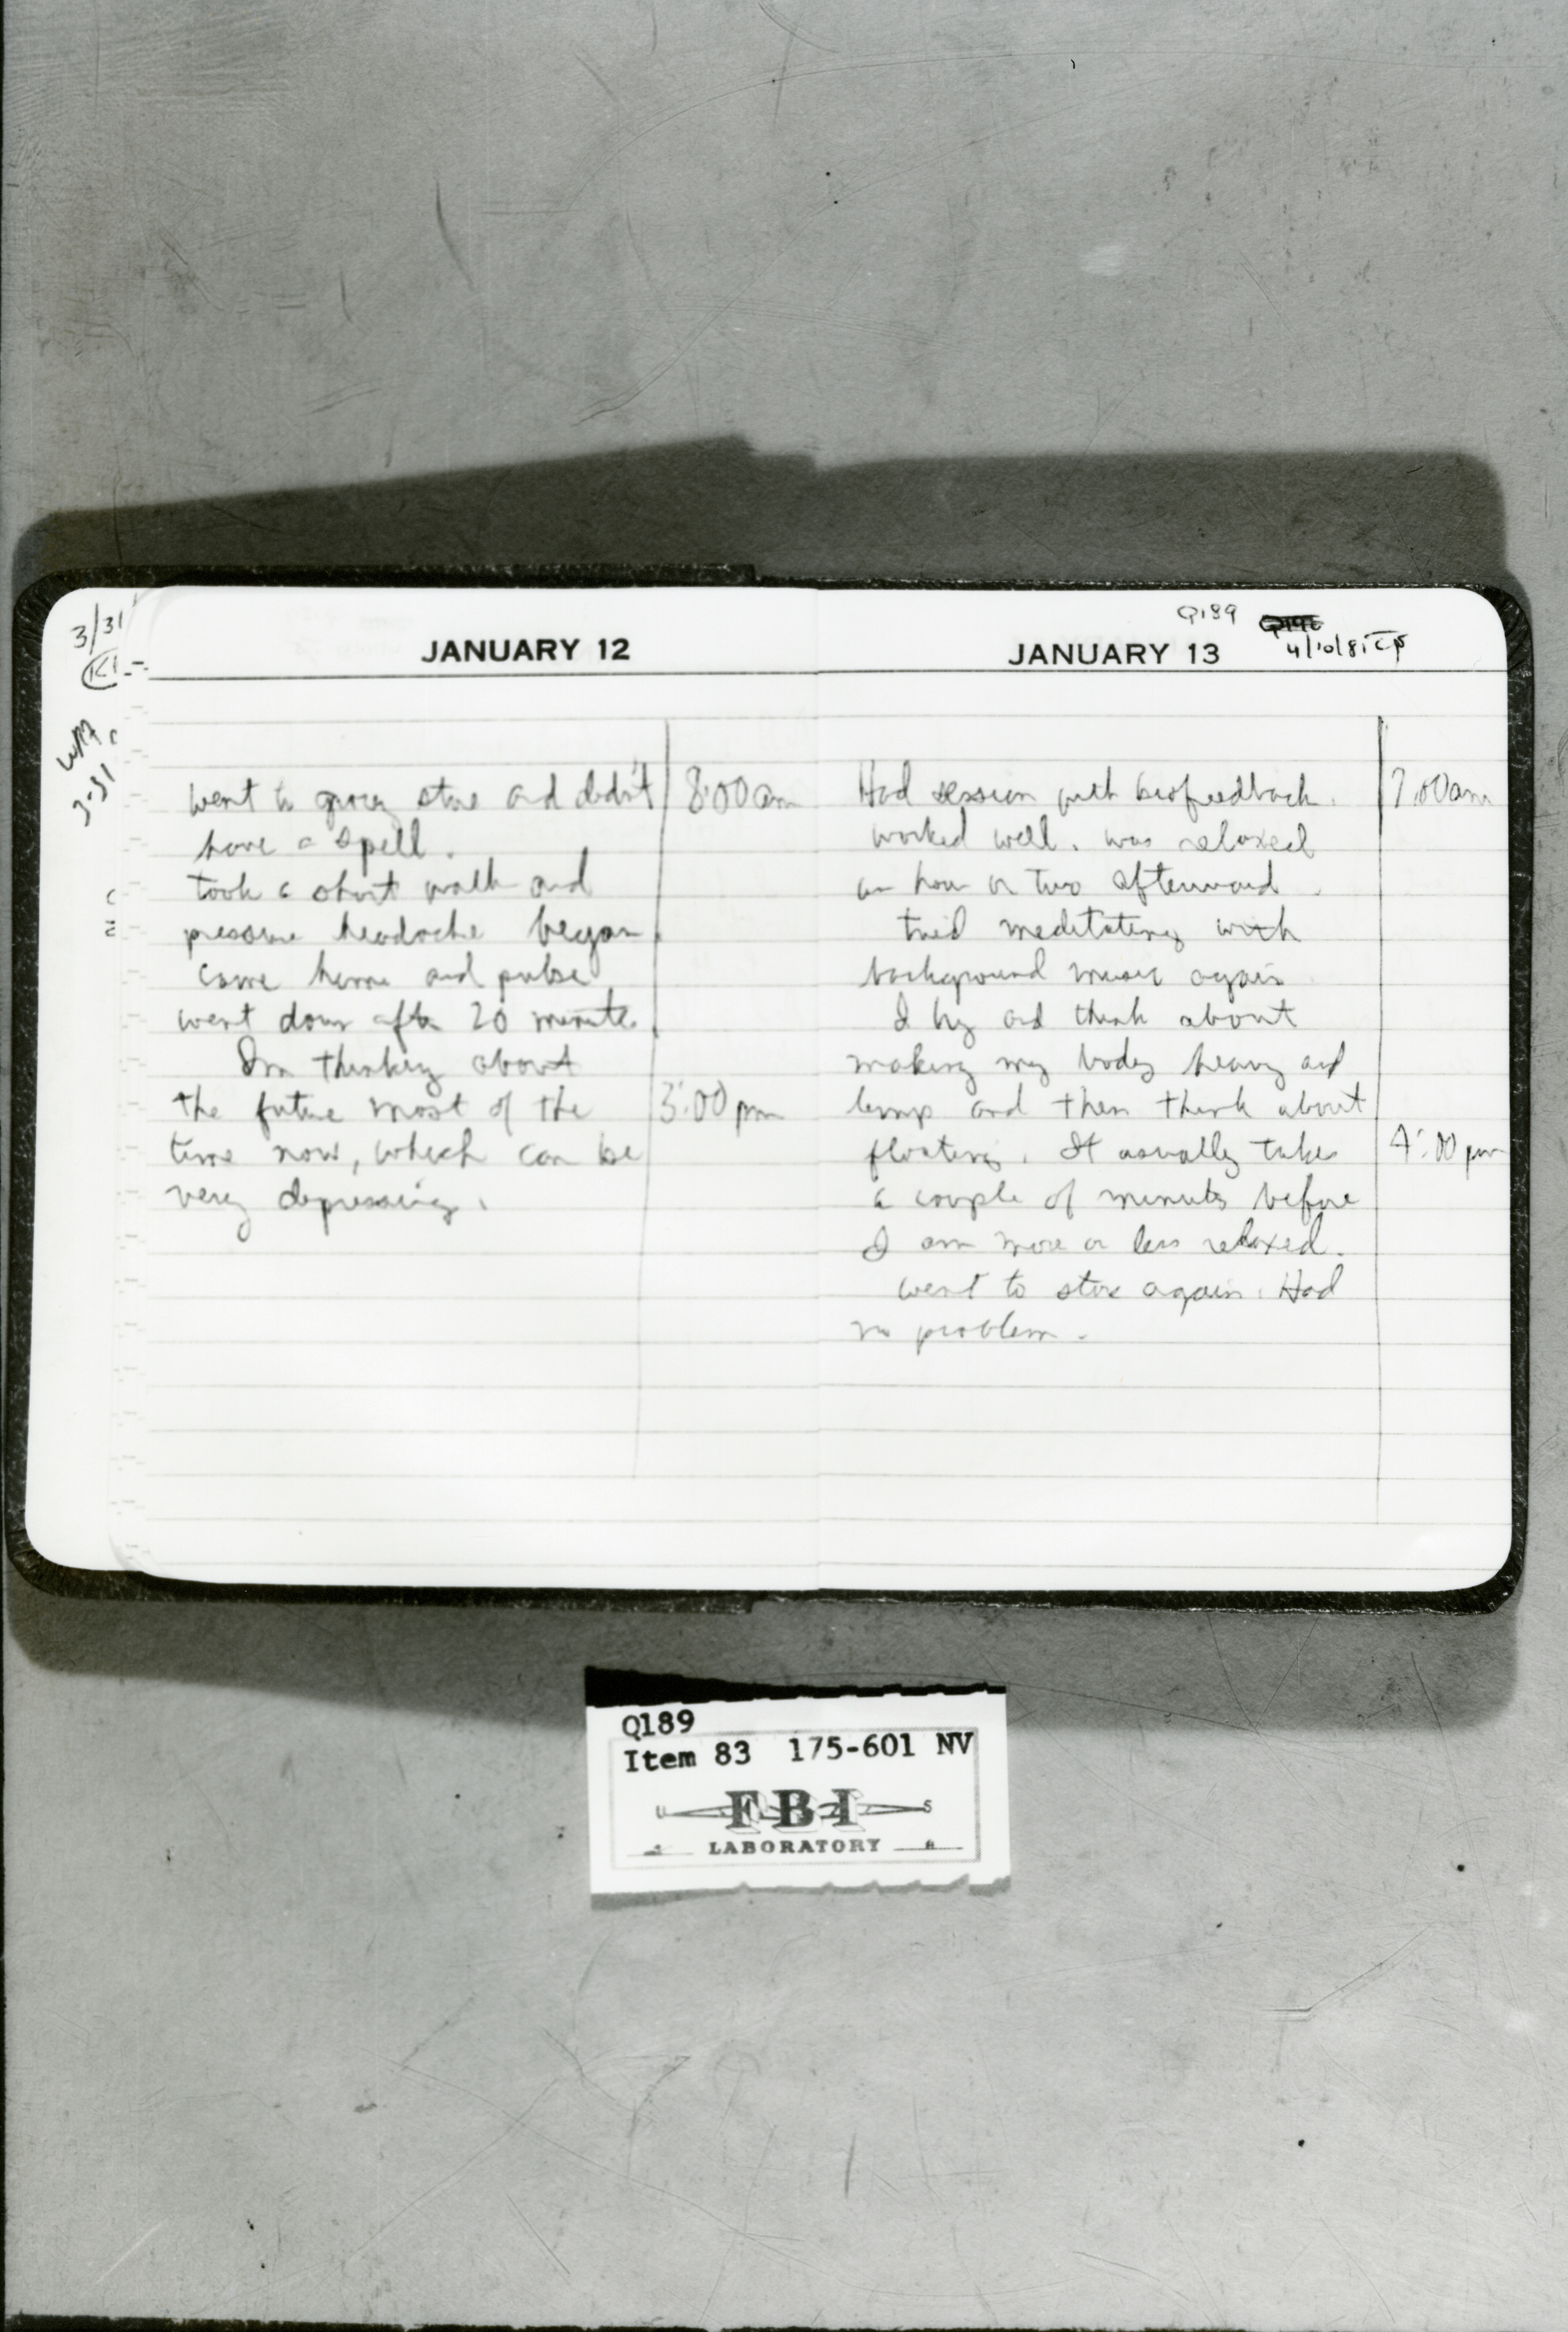 3/31
JANUARY 12
3-31
went to grocery store and didn't 8:00 am
have a spell.
took a short walk and
pressure headache began.
came home and pulse
went down after 20 minutes.
I'm thinking about
the future most of the 3:00 pm
time now, which can be
very depressing.
Q189
4/10/81
JANUARY 13
Had session with biofeedback. 7:00 am
worked well. was relaxed
an hour or two afterward.
tried meditating with
background music again
I lay and think about
making my body heavy and
limp and then think about
floating. It usually takes 4:00 pm
a couple of minutes before
I am more or less relaxed.
went to store again. Had
no problem.
Q189
Item 83 175-601 NV
U S
FBI
LABORATORY